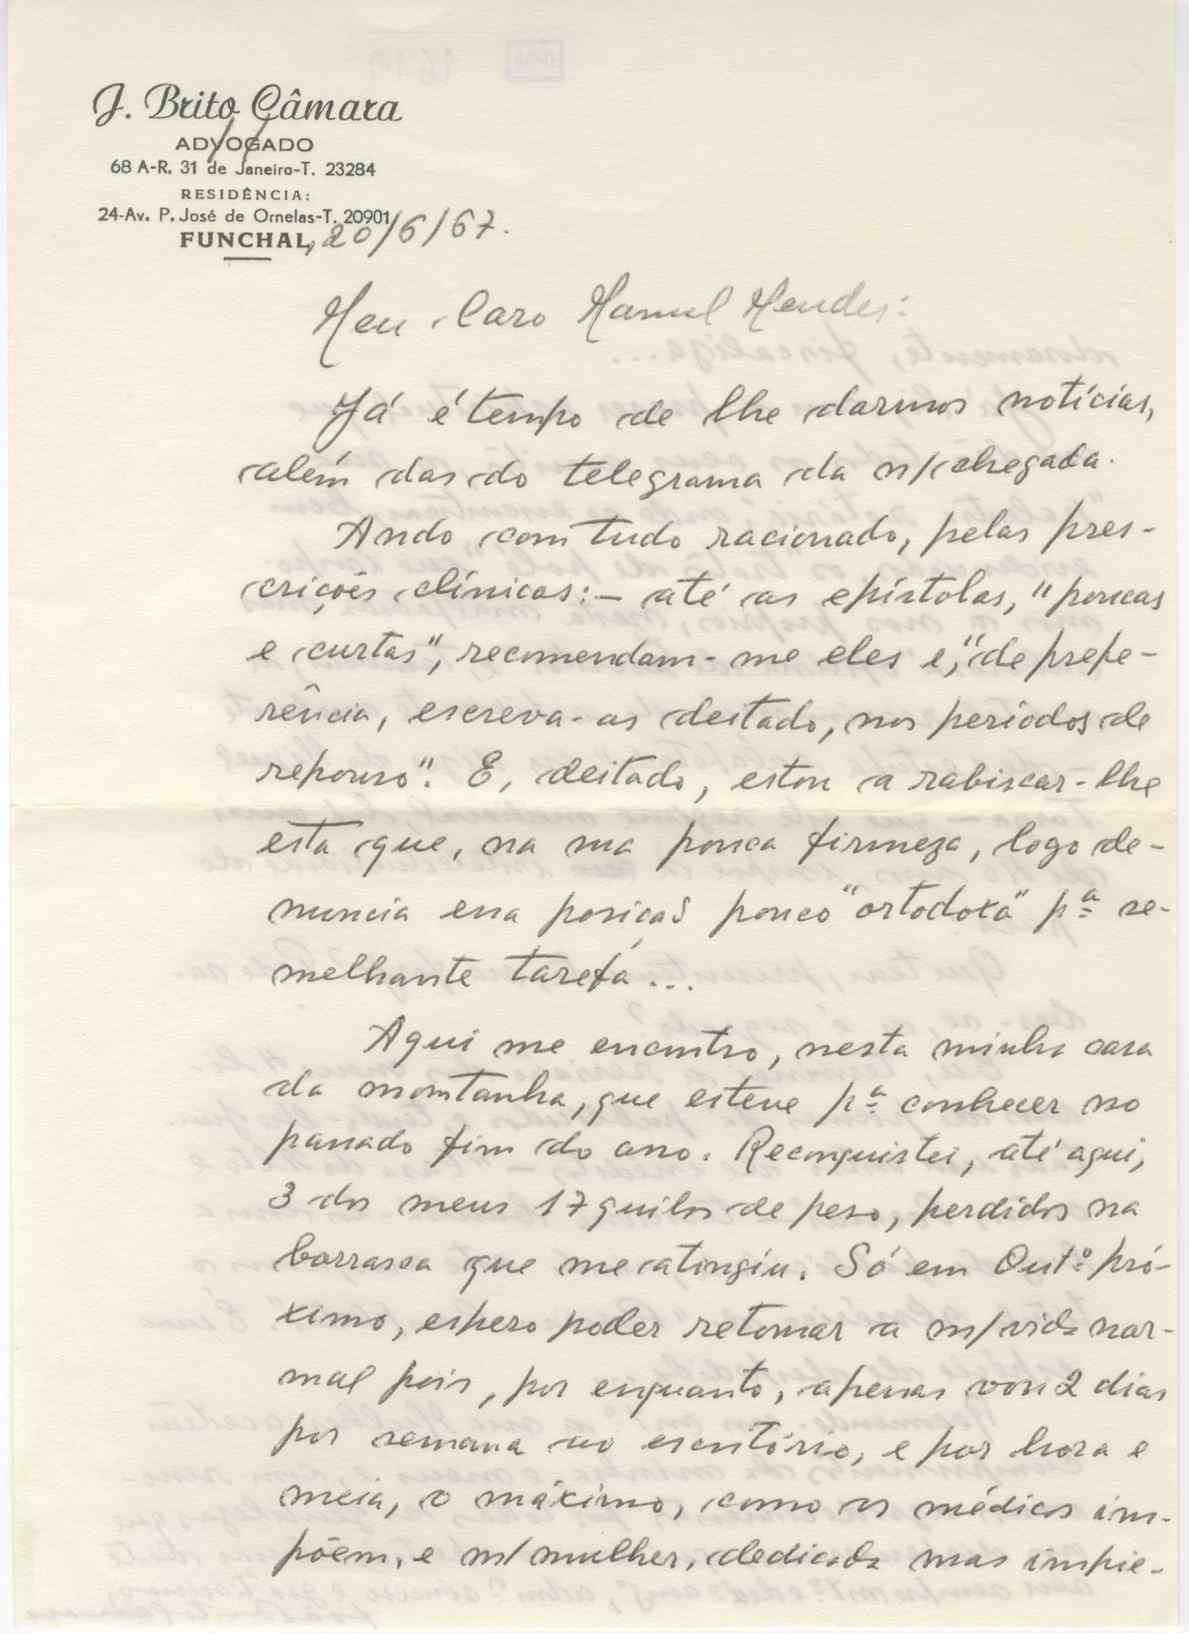 J. Brito Câmara
ADVOGADO
68 A-R. 31 de Janeiro-T. 23284
RESIDÊNCIA:
24-Av. P. José de Ornelas-T. 20901
FUNCHAL, 20/6/67.
Meu Caro Manuel Mendes:
Já é tempo de lhe darmos notícias,
além das do telegrama da n/chegada.
Ando com tudo racionado, pelas pres-
crições clínicas:- até as epístolas, "poucas
e curtas", recomendam-me eles e, "de prefe-
rência, escreva-as deitado, nos períodos de
repouso". E, deitado, estou a rabiscar-lhe
esta que, na sua pouca firmeza, logo de-
nuncia essa posição pouco "ortodoxa" pª se-
melhante tarefa...
Aqui me encontro, nesta minha casa
da montanha, que esteve pª conhecer no
passado fim do ano. Reconquistei, até aqui,
3 dos meus 17 quilos de peso, perdidos na
borrasca que me atingiu. Só em Outº pró-
ximo, espero poder retomar a m/vida nor-
mal pois, por enquanto, apenas vou 2 dias
por semana ao escritório, e por hora e
meia, o máximo, como os médicos im-
põem, e m/mulher, dedicada mas impie-